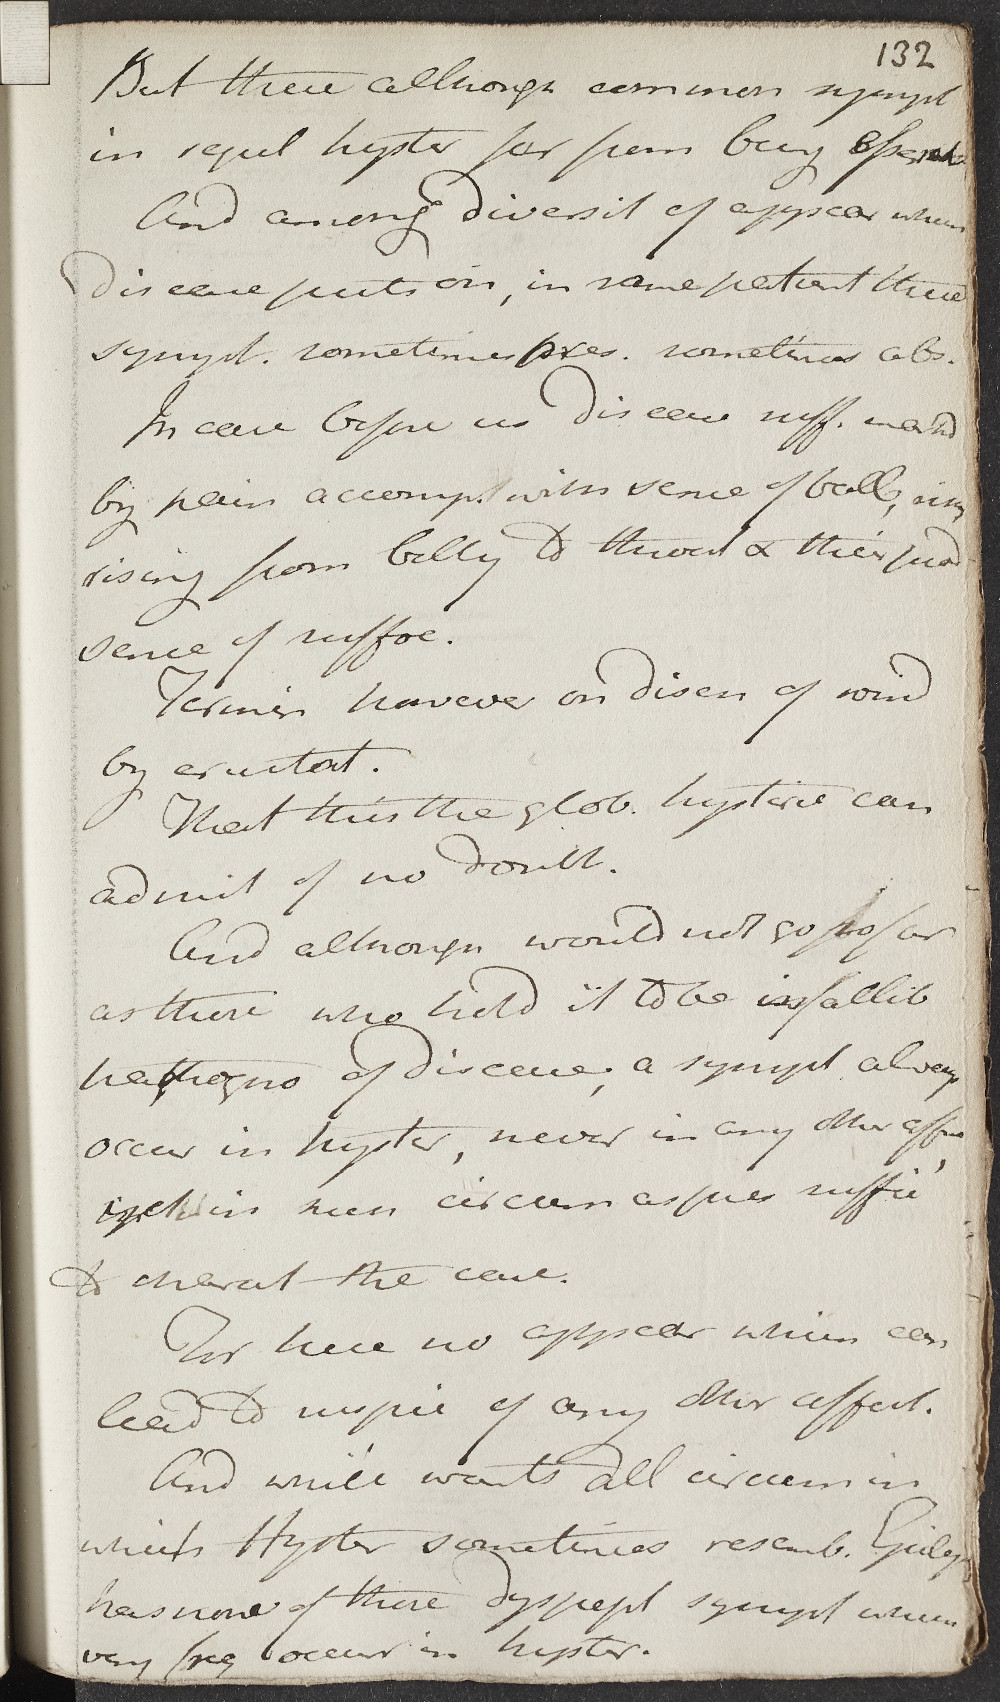 132
But these although common sympt
in sequel hyster far from being essential
And among diversit of appear when
disease puts on, in same patient these
sympt. sometimes pres. sometimes abs.
In case before us disease suff. mark'd
by pain accomp. with sense of ball,
rising from belly to throat & their prod
sense of suffoc.
Termin however on disch of wind
by eructat.
That this the glob. hysteric can
admit of no doubt.
And although would not go so far
as those who hold it to be infallib
pathogno of disease, a sympt always
occur in hyster, never in any other affec
yet in such circum as pres suffic
to charact the case.
For here no appear which can
lead to suspic of any other affect.
And while wants all circum in
which Hyster sometimes resemb. Epileps
has none of those dyspept sympt which
very freq occur in hyster.